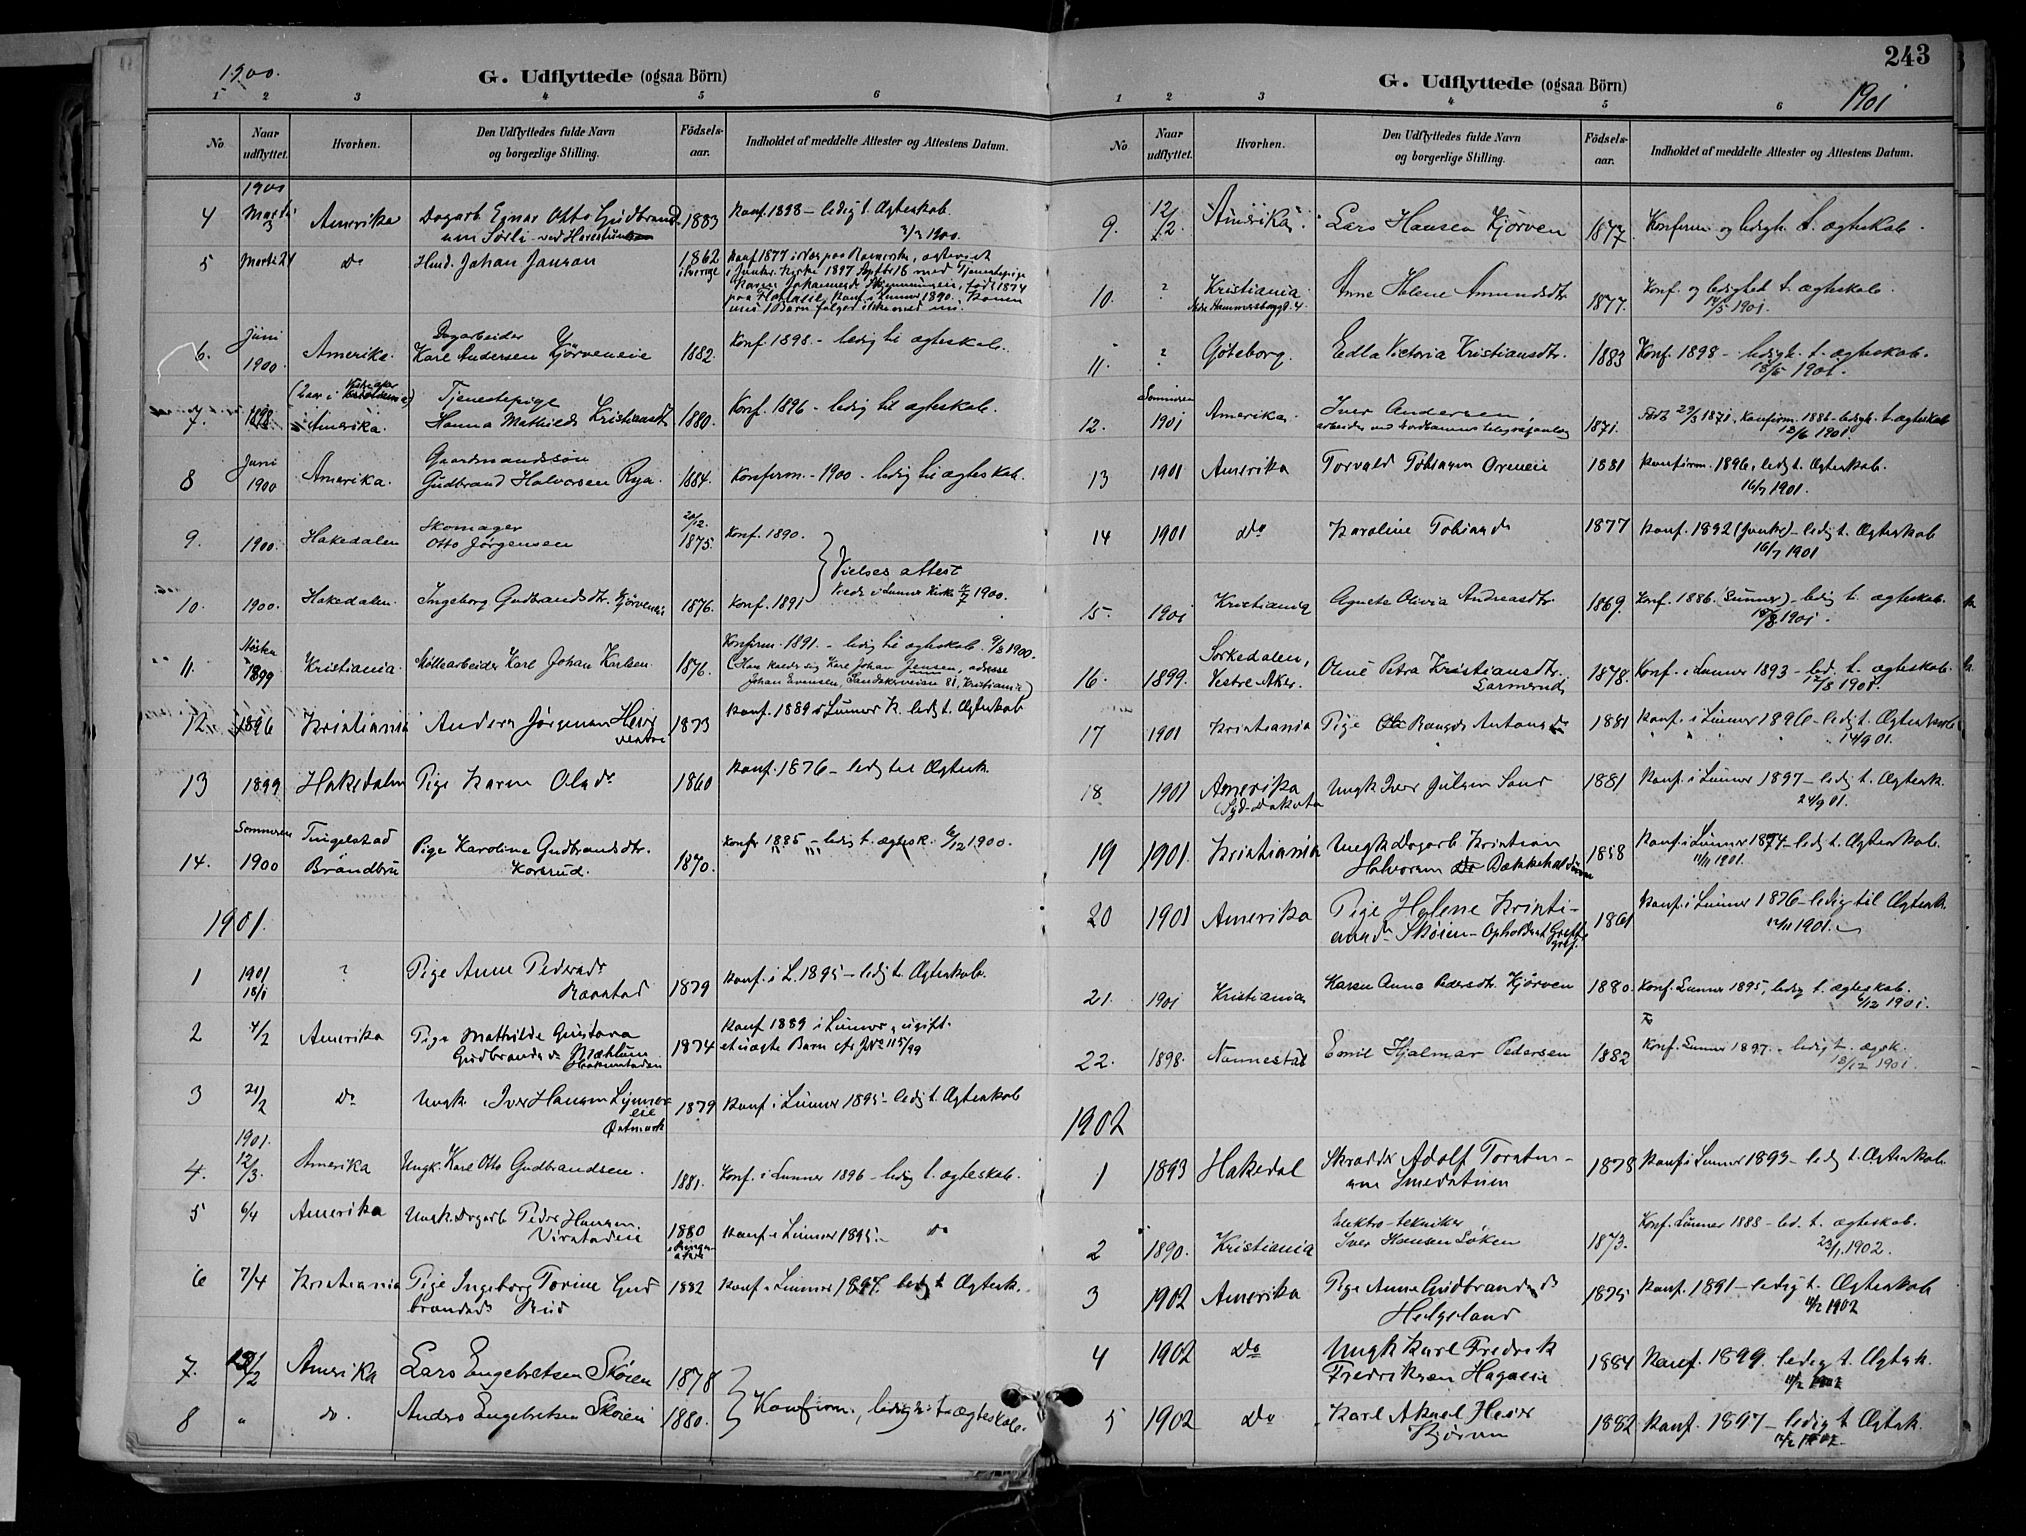 1900.
G. Udflyttede (ogsaa Börn)
1 2 3 4 5 6
No
Naar udflyttet.
Hvorhen.
Den Udflyttedes fulde Navn og borgerlige Stilling.
Födsels-aar.
Indholdet af meddelte Attester og Attestens Datum.
1900
4 Marts 3 Amerika Dagarb. Egnar Otto Gudbrand- 1883 Konf. 1898 – ledig t. Ægteskab.
sen Sørli ved Harestuen 3/3 1900.
5 Marts 21 do Hmd. Johan Jansson 1862 i Sverige
6. Juni 1900 Amerika. Dagarbeider
Karl Andersen Kjørveneie 1882. Konf. 1898 – ledig til ægteskab.
7. 1898 Amerika. Tjenestepige
Hanna Mathilde Kristiansdt. 1880. Konf. 1896 – ledig til ægteskab.
8 Juni 1900 Amerika. Gaardmandssøn
Gudbrand Halvorsen Rya. 1884. Konferm. – 1900 – ledig til ægteskab.
9. 1900. Hakedalen Skomager
Otto Jørgensen 20/12 1875. Konf. 1890.
Vielsesattest
10. 1900. Hakedalen. Ingeborg Gudbrandsdtr. Kjørveneie 1876. Konf. 1891
Viede i Lunner Kirke 1900.
11. Høsten 1899 Kristiania. Møllearbeider Karl Johan Karlsen 1871. Konferm. 1891. – ledig til ægteskab. 9/8 1900.
(Han kalder sig Karl Johan Jensen, adresse
Johan Evensen, Sandakerveien 81, Kristiania)
12. 1896 Kristiania Anders Jørgensen 1873 Konf. 1889 i Lunner K. ledig t. Ægteskab
13 1899 Hakedalen Pige Karen Olsdr 1860 Konf. 1876 – ledig til Ægtesk.
14. Sommeren 1900 Tingelstad
Brandbu Pige Karoline Gudbrandsdtr.
Korsrud. 1870. Konfr 1885 – ledig t. ægtesk. 6/12 1900.
1901.
1 1901 18/1 ? Pige Anne Pedersdr 1879 Konf. i L. 1895 – ledig t. Ægteskab.
2 4/2 Amerika Pige Mathilde Gustava
Gudbrandsdr 1874 Konf 1889 i Lunner, ugift.
et uægte Barn
3 21/2 do Ungk. Iver Hansen Lynnereie
Østmark 1879 Konf. i Lunner 1895 – ledig t. Ægteskab
1901.
4. 12/3. Amerika Ungk. Karl Otto Gudbrandsen. 1881. Konf. i Lunner 1896 – ledig t. ægteskab.
5 6/4 Amerika Ungk. Dagarb Peder Hansen 1880 Konf. i Lunner 1895 – do
6 7/4 Kristiania Pige Ingeborg Torine Gud
brandsdr Rud 1882 Konf. i Lunner 1897. ledig t Ægtesk.
7. Amerika Lars Engebretsen Skøien 1878
8 " do. Anders Engebretsen Skøien 1880. Konfirm., ledighet t. ægteskab.
243
G. Udflyttede (ogsaa Börn)
1901
1 2 3 4 5 6
No
Naar udflyttet.
Hvorhen.
Den Udflyttedes fulde Navn og borgerlige Stilling.
Födsels-aar.
Indholdet af meddelte Attester og Attestens Datum.
9. 12/2. Amerika Lars Hansen Kjørven 1877. Konferm. og ledigh. t. ægteskab.
10. ? Kristiania Anne Helene Amundsdtr 1877. Konf. og ledighed t. ægteskab.
14/5 1901.
11. ? Göteborg. Edla Victoria Kristiansdtr. 1883 Konf. 1898 – ledigh. t. ægteskab.
18/5 1901.
12. Sommeren 1901 Amerika. Iver Andersen, 1871. Født 29/3 1871, Konfirm. 1886 – ledigh. t. ægteskab
18/6 1901.
13 1901 Amerika Torvald Tobiasen Oreneie 1881 Konferm. 1896, ledig t. Ægteskab.
16/7 1901.
14 1901 do Karoline Tobiasdr 1877 Konf. 1892 – ledig t. Ægteskab
16/7 1901
15 1901 Kristiania Agnete Olivia Andreasdtr. 1869. Konf. 1886. (Lunner) – ledig t. ægteskab.
1901.
16. 1899. Sørkedalen,
Vestre Aker. Oline Petra Kristiansdtr. 1878. Konf. i Lunner 1893 – led. t. ægteskab.
12/8 1901.
17 1901 Kristiania Pige Antonsdr 1881 Konf. i Lunner 1896 – ledig t. Ægteskab
14/9 01.
18 1901 Amerika
(Syd-Dakota Ungk Iver Julsen Sand 1881 Konf. i Lunner 1897 – ledig t. Ægtesk.
24/9 01.
19 1901 Kristiania Ungk Dagarb Kristian
Halvorsen 1858 Konf. i Lunner 1874 – ledig t. Ægteskab.
11/11 1901.
20 1901 Amerika Pige Helene Kristi-
ansdr Skøien – 1861 Konf. i Lunner 1876 – ledig til Ægtesk.
12/11 1901.
21. 1901 Kristiania Karen Anna Pedersdtr. Kjørven 1880. Konf. Lunner 1895, ledig t. ægteskab.
6/12 1901.
22. 1898. Nannestad Emil Hjalmar Pedersen 1882 Konf. Lunner 1897. – ledig t. ægtesk.
18/12 1901.
1902
1 1893 Hakedal Skrædder Adolf Torsten-
sen Smedstuen 1878 Konf. i Lunner 1893 – ledig t. Ægteskab.
2 1890. Kristiania Elektro-tekniker
Iver Hansen Løken 1873. Konf. Lunner 1888 – led. t. ægteskab.
23/1 1902.
3 1902 Amerika Pige Anne Gudbrandsdr
Helgeland 1875 Konf. 1891 – ledig t. Ægteskab
11/2 1902
4 1902 do Ungk Karl Fredrik
Fredriksen Hageneie 1884 Konf. 1899. ledig t. Ægtesk.
11/2 1902
5 1902 do Karl Aksel
Kjørven 1882 Konf. 1897 – ledig t. Ægtesk.
12/2 1902.